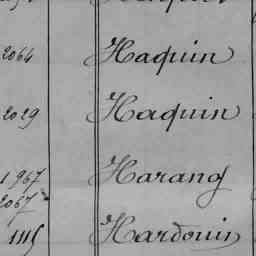 2064 Haquin
2029 Haquin
1967 Harang
2067
1115 Hardouin